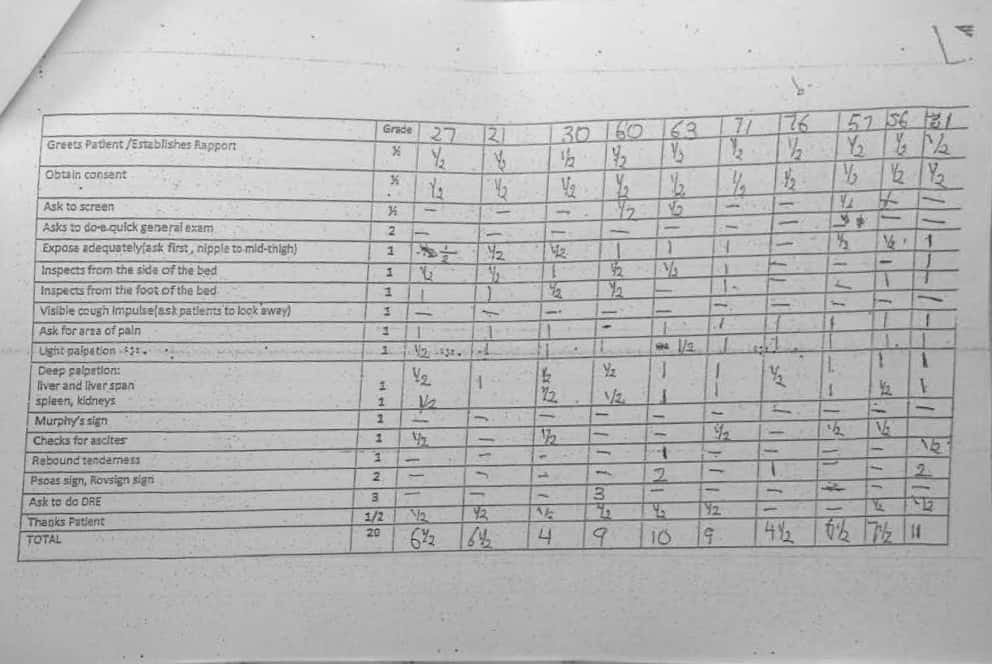 Grade 27 21 30 60 63 71 76 57 56 31
Greets Patient /Establishes Rapport ½ ½ ½ ½ ½ ½ ½ ½ ½ ½ ½
Obtain consent ½ ½ ½ ½ ½ ½ ½ ½ ½ ½ ½
Ask to screen ½ — — — ½ ½ — — —
Asks to do a quick general exam 2 — — — — — — — —
Expose adequately(ask first , nipple to mid-thigh) 1 ½ ½ ½ 1 1 1 — ½ ½ 1
Inspects from the side of the bed 1 ½ ½ 1 ½ ½ 1 — — — 1
Inspects from the foot of the bed 1 1 1 ½ ½ — 1 — — 1 1
Visible cough impulse(ask patients to look away) 1 — — — — — — — — — —
Ask for area of pain 1 1 1 1 — 1 1 1 1 1 1
Light palpation 1 ½ 1 1 1 ½ 1 1 1 1
Deep palpation:
liver and liver span 1 ½ 1 ½ ½ 1 1 ½ 1 1 1
spleen, kidneys 1 ½ ½ ½ 1 1 1 ½ 1
Murphy's sign 1 — — — — — — — — — —
Checks for ascites 1 ½ — ½ — — ½ — ½ ½
Rebound tenderness 1 — — — — 1 — — — — ½
Psoas sign, Rovsign sign 2 — — — — 2 — 1 — — 2
Ask to do DRE 3 — — — 3 — — — — —
Thanks Patient 1/2 ½ ½ ½ ½ ½ ½ — — ½ ½
TOTAL 20 6½ 6½ 4 9 10 9 4½ 6½ 7½ 11